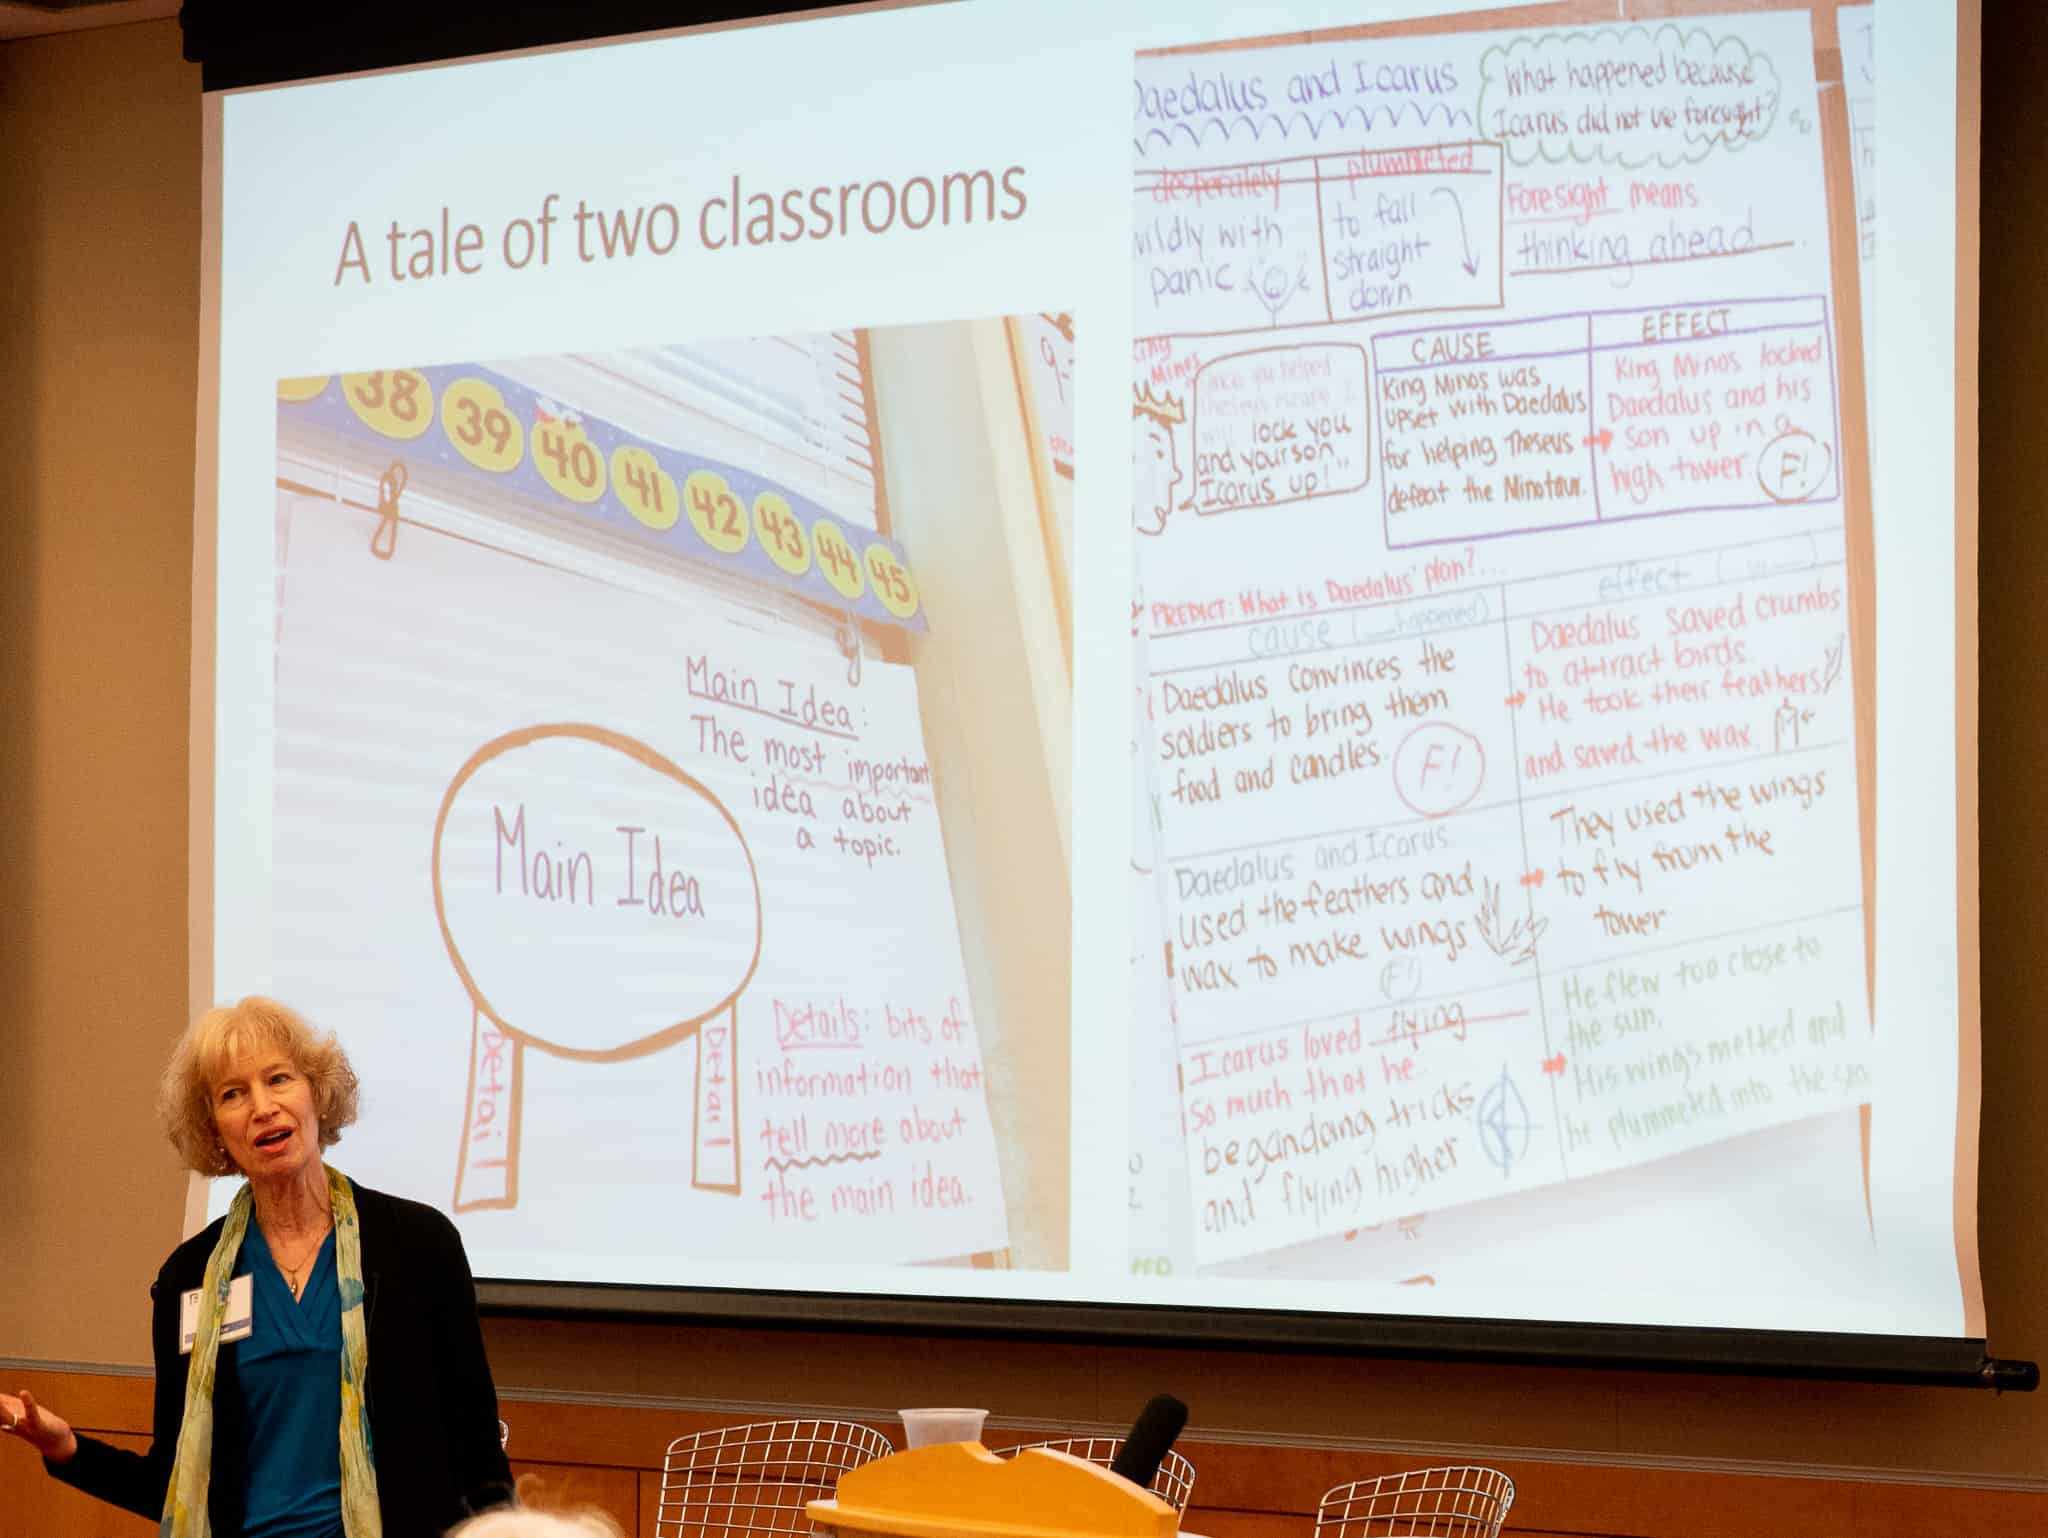 A tale of two classrooms
38 39 40 41 42 43 44 45
Main Idea:
The most important
idea about
a topic.
Main Idea
Detail
Detail
Details: bits of
information that
tell more about
the main idea.
Daedalus and Icarus
What happened because
Icarus did not use foresight?
desperately
plummeted
wildly with
panic
to fall
straight
down
Foresight means
thinking ahead.
King
Minos
lock you
and your son
Icarus up!"
CAUSE
EFFECT
King Minos was
upset with Daedalus
for helping Theseus
defeat the Minotaur.
King Minos locked
Daedalus and his
son up in a
high tower.
F!
PREDICT: What is Daedalus' plan?...
cause (__happened)
effect
Daedalus convinces the
soldiers to bring them
food and candles.
F!
Daedalus saved crumbs
to attract birds.
He took their feathers
and saved the wax.
Daedalus and Icarus
used the feathers and
wax to make wings
F!
They used the wings
to fly from the
tower
Icarus loved flying
so much that he
began doing tricks
and flying higher
He flew too close to
the sun.
His wings melted and
he plummeted into the sea